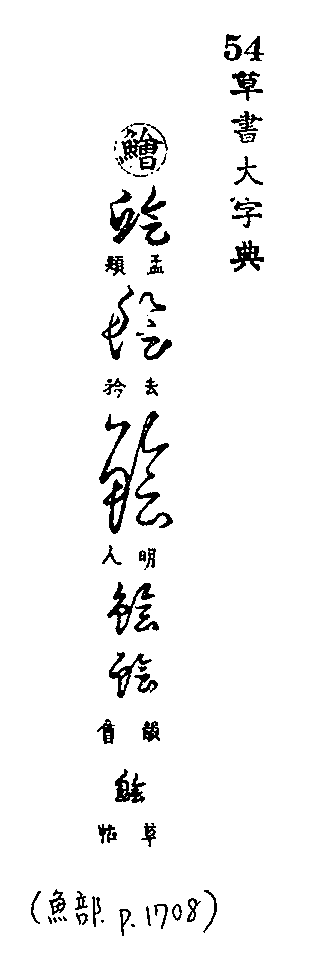 54草書大字典
鱠
鱠
孟頫
鱠
去矜
鱠
明人
鱠
鱠
韻會
鱠
草帖
(魚部. p.1708)